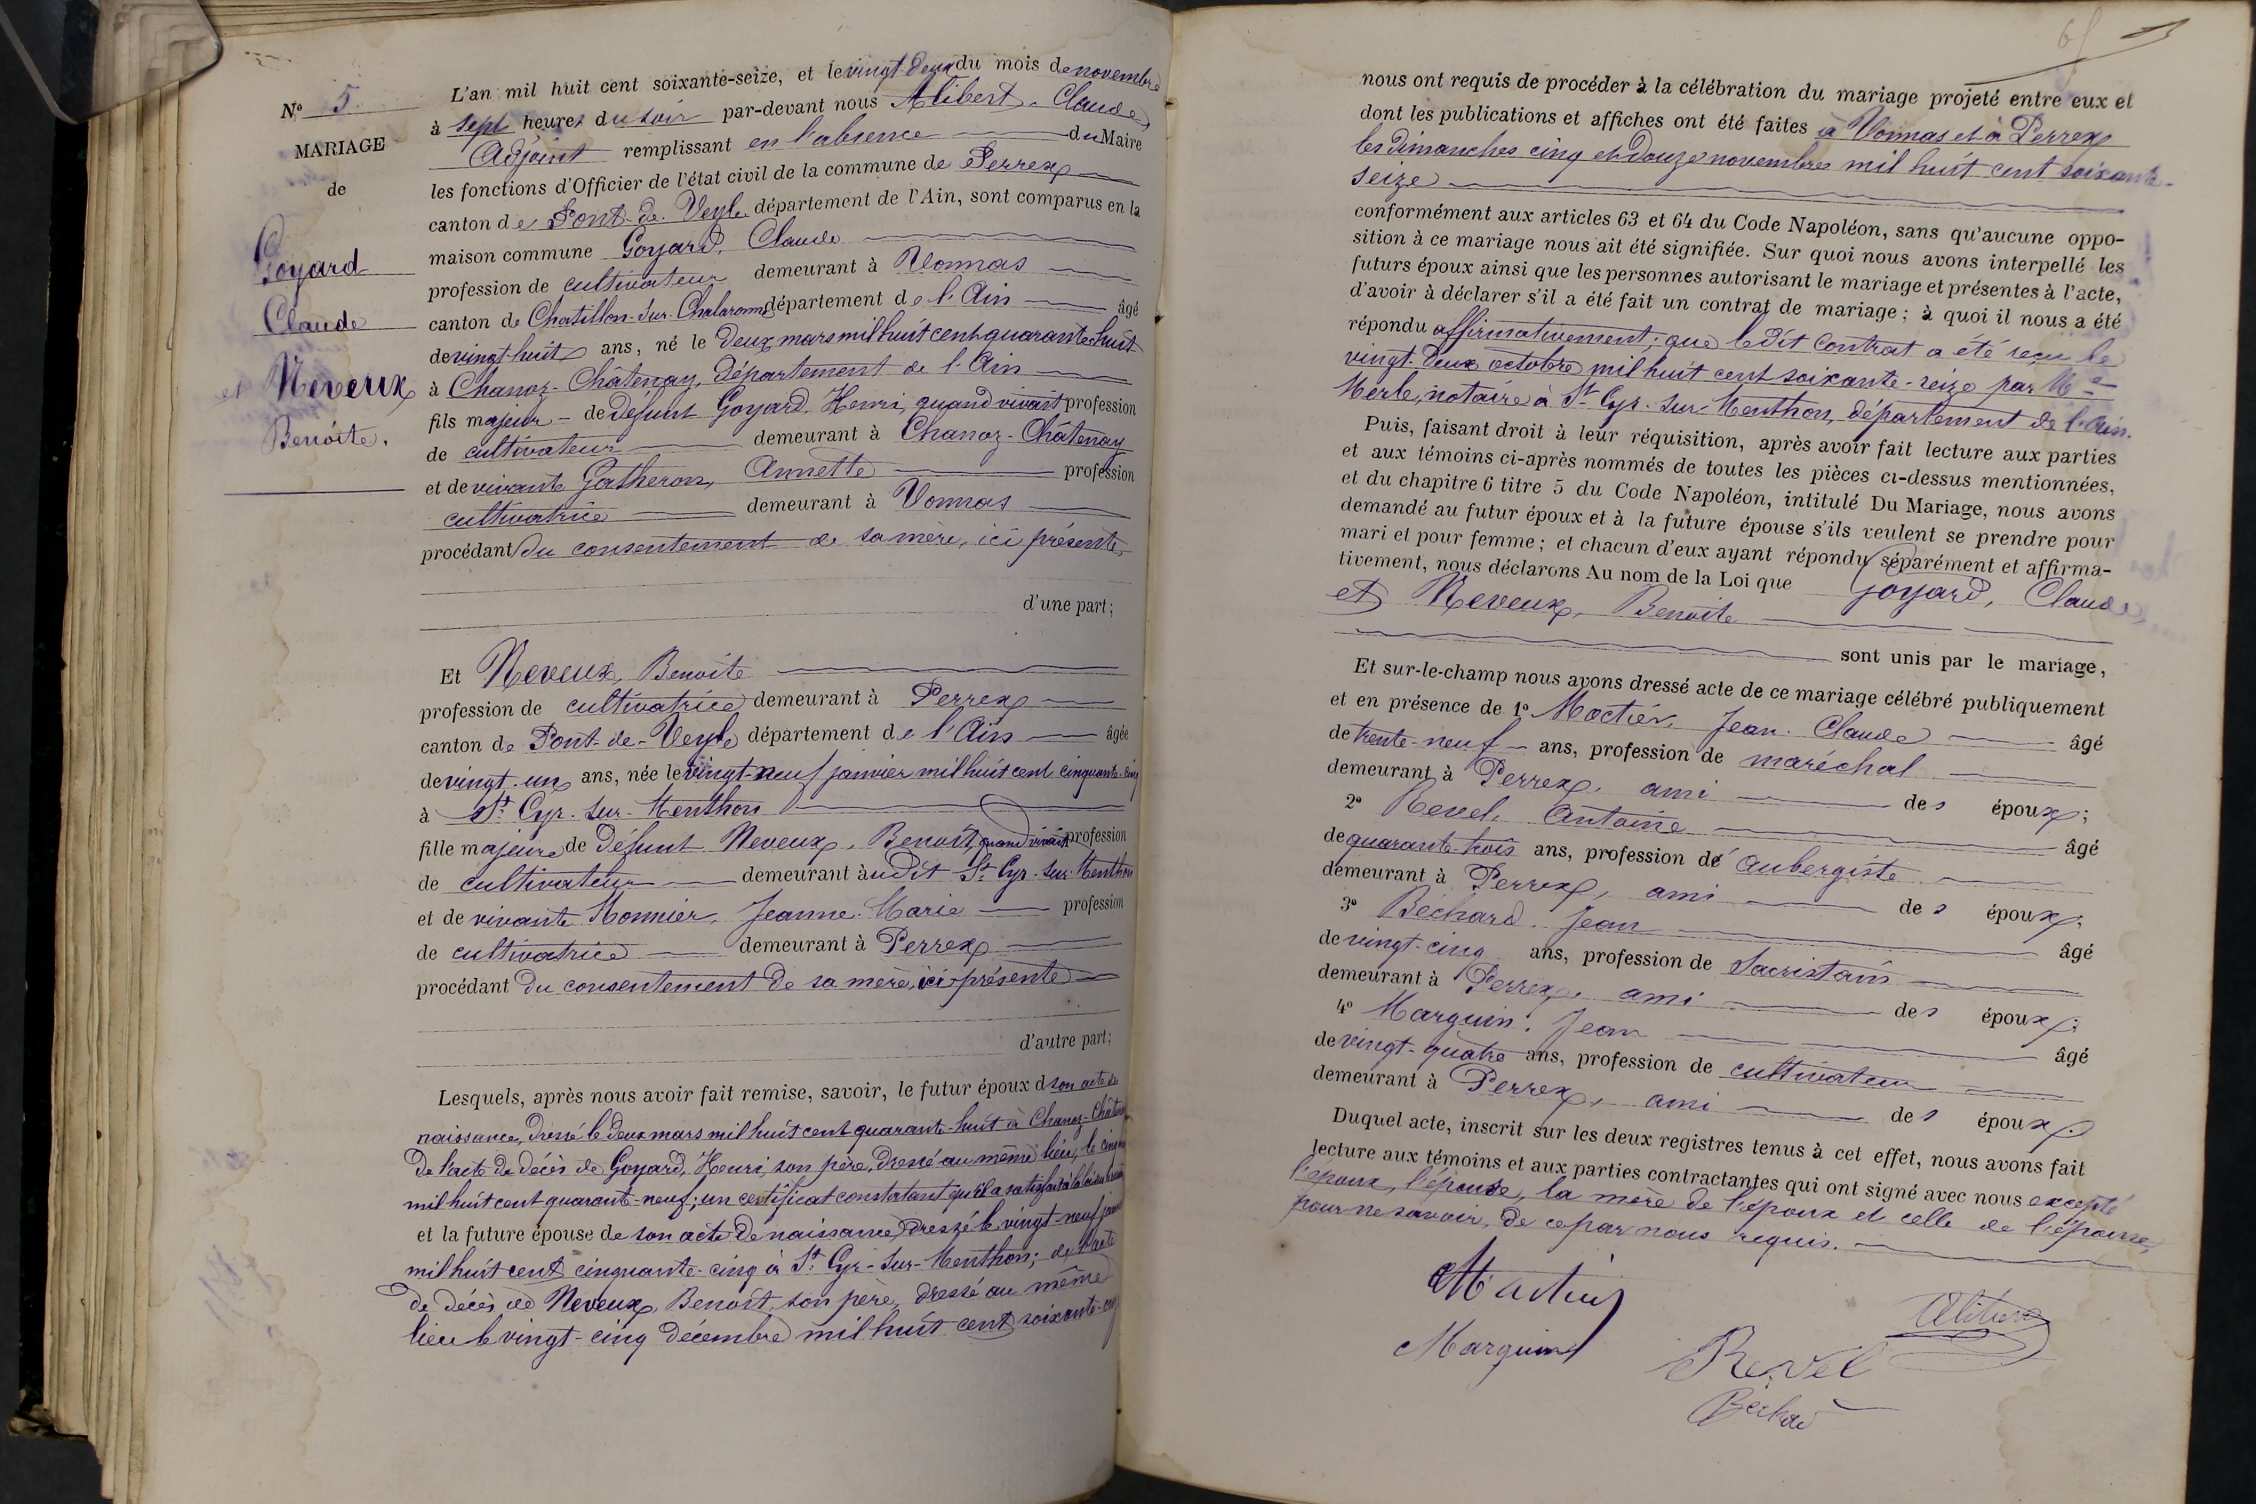 N.º 5.
MARIAGE
de
Goyard
Claude
et Neveux
Benoite.
L'an mil huit cent soixante-seize, et le vingt-deux du mois de novembre
à sept heures du soir par-devant nous Alibert, Claude,
Adjoint remplissant en l'absence du Maire
les fonctions d'Officier de l'état civil de la commune de Perrex
canton de Pont-de-Veyle département de l'Ain, sont comparus en la
maison commune Goyard, Claude
profession de cultivateur demeurant à Vonnas
canton de Chatillon-sur-Chalaronne département de l'Ain âgé
de vingt-huit ans, né le deux mars mil huit cent quarante-huit
à Chanoz-Châtenay, département de l'Ain
fils majeur de défunt Goyard, Henri, quand vivait profession
de cultivateur demeurant à Chanoz-Châtenay
et de vivante Gatheron, Annette profession
cultivatrice demeurant à Vonnas
procédant du consentement de sa mère, ici présente
d'une part;
Et Neveux, Benoite
profession de cultivatrice demeurant à Perrex
canton de Pont-de-Veyle département de l'Ain âgée
de vingt-un ans, née le vingt-neuf janvier mil huit cent cinquante-cinq
à St. Cyr-sur-Menthon
fille majeure de défunt Neveux, Benoît, quand vivait profession
de cultivateur demeurant audit St. Cyr-sur-Menthon
et de vivante Monnier, Jeanne-Marie profession
de cultivatrice demeurant à Perrex
procédant du consentement de sa mère, ici présente
d'autre part;
Lesquels, après nous avoir fait remise, savoir, le futur époux d son acte de
naissance, dressé le deux mars mil huit cent quarante-huit à Chanoz-Châtenay
de l'acte de décès de Goyard, Henri, son père, dressé au même lieu, le cinq
mil huit cent quarante-neuf; un certificat constatant qu'il a satisfait à la loi du
et la future épouse de son acte de naissance dressé le vingt-neuf janvier
mil huit cent cinquante-cinq à St. Cyr-sur-Menthon; de l'acte
de décès de Neveux, Benoît, son père, dressé au même
lieu le vingt-cinq décembre mil huit cent soixante-cinq
nous ont requis de procéder à la célébration du mariage projeté entre eux et
dont les publications et affiches ont été faites à Vonnas et à Perrex
les dimanches cinq et douze novembre mil huit cent soixante-
seize
conformément aux articles 63 et 64 du Code Napoléon, sans qu'aucune oppo-
sition à ce mariage nous ait été signifiée. Sur quoi nous avons interpellé les
futurs époux ainsi que les personnes autorisant le mariage et présentes à l'acte,
d'avoir à déclarer s'il a été fait un contrat de mariage; à quoi il nous a été
répondu affirmativement; que ledit Contrat a été reçu le
vingt-deux octobre mil huit cent soixante-seize par Me
Merle, notaire à St. Cyr-sur-Menthon, département de l'Ain.
Puis, faisant droit à leur réquisition, après avoir fait lecture aux parties
et aux témoins ci-après nommés de toutes les pièces ci-dessus mentionnées,
et du chapitre 6 titre 5 du Code Napoléon, intitulé Du Mariage, nous avons
demandé au futur époux et à la future épouse s'ils veulent se prendre pour
mari et pour femme; et chacun d'eux ayant répondu séparément et affirma-
tivement, nous déclarons Au nom de la Loi que Goyard, Claude,
et Neveux, Benoite
sont unis par le mariage,
Et sur-le-champ nous avons dressé acte de ce mariage célébré publiquement
et en présence de 1º Jean-Claude âgé
de trente-neuf ans, profession de maréchal
demeurant à Perrex, ami des époux;
2º Revel, Antoine âgé
de quarante-trois ans, profession de Aubergiste
demeurant à Perrex, ami des époux;
3º Béchard, Jean âgé
de vingt-cinq ans, profession de Sacristain
demeurant à Perrex, ami des époux;
4º Marguin, Jean âgé
de vingt-quatre ans, profession de cultivateur
demeurant à Perrex, ami des époux;
Duquel acte, inscrit sur les deux registres tenus à cet effet, nous avons fait
lecture aux témoins et aux parties contractantes qui ont signé avec nous excepté
l'époux, l'épouse, la mère de l'époux et celle de l'épouse,
pour ne savoir, de ce par nous requis.
Marguin
Revel